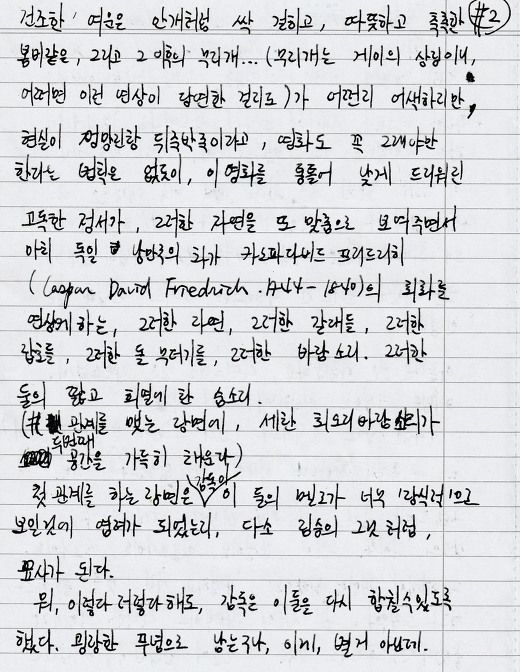 건조한 겨울은 안개처럼 싹 걷히고, 따뜻하고 촉촉한 #2
봄비같은, 그리고 그 이후의 무지개... (무지개는 게이의 상징이니,
어쩌면 이런 연상이 당연한 걸지도)가 어쩐지 어색하리만,
현실이 엉망진창 뒤죽박죽이라고, 영화도 꼭 그래야만
한다는 법칙은 없듯이, 이 영화를 통틀어 낮게 드리워진
고독한 정서가, 그러한 자연을 또 맞춤으로 보여주면서
마치 독일 낭만주의 화가 카스파 다비드 프리드리히
(Caspar David Friedrich. 1744-1840)의 회화를
연상케 하는, 그러한 자연, 그러한 갈대들, 그러한
암흑들, 그러한 돌 무더기들, 그러한 바람 소리. 그러한
둘의 짧고 희열에 찬 숨소리.
(# 관계를 맺는 장면에, 세찬 회오리바람 소리가
두번째 공간을 가득히 채운다)
첫 관계를 하는 장면은 감독이 이 둘의 멘트가 너무 '장식적'으로
보일것에 염려가 되었는지, 다소 짐승의 그것처럼,
묘사가 된다.
뭐, 이렇다 저렇다 해도, 감독은 이들을 다시 합칠수있도록
했다. 굉장한 푸념으로 남는구나, 이게, 별거 아닌데.